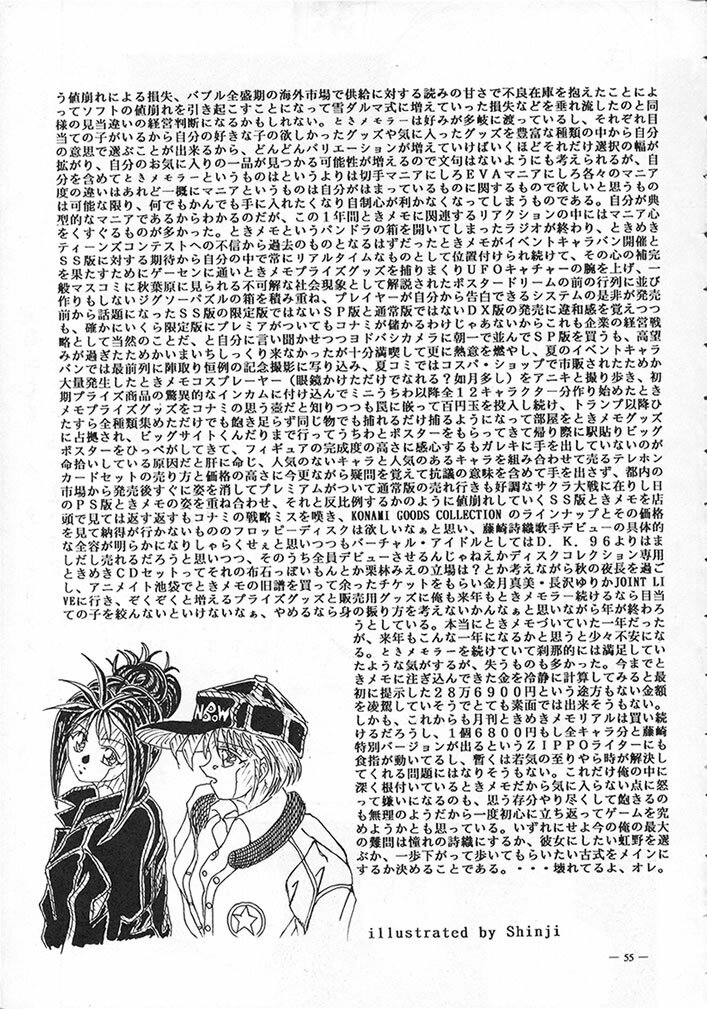 う値崩れによる損失、バブル全盛期の海外市場で供給に対する読みの甘さで不良在庫を抱えたことによ
ってソフトの値崩れを引き起こすことになって雪ダルマ式に増えていった損失などを垂れ流したのと同
様の見当違いの経営判断になるかもしれない。ときメモラーは好みが多岐に渡っているし、それぞれ目
当ての子がいるから自分の好きな子の欲しかったグッズや気に入ったグッズを豊富な種類の中から自分
の意思で選ぶことが出来るから、どんどんバリエーションが増えていけばいくほどそれだけ選択の幅が
拡がり、自分のお気に入りの一品が見つかる可能性が増えるので文句はないようにも考えられるが、自
分を含めてときメモラーというものはというよりは切手マニアにしろＥＶＡマニアにしろ各々のマニア
度の違いはあれど一概にマニアというものは自分がはまっているものに関するもので欲しいと思うもの
は可能な限り、何でもかんでも手に入れたくなり自制心が利かなくなってしまうものである。自分が典
型的なマニアであるからわかるのだが、この１年間ときメモに関連するリアクションの中にはマニア心
をくすぐるものが多かった。ときメモというパンドラの箱を開いてしまったラジオが終わり、ときめき
ティーンズコンテストへの不信から過去のものとなるはずだったときメモがイベントキャラバン開催と
ＳＳ版に対する期待から自分の中で常にリアルタイムなものとして位置付けられ続けて、その心の補完
を果たすためにゲーセンに通いときメモプライズグッズを捕りまくりＵＦＯキャチャーの腕を上げ、一
般マスコミに秋葉原に見られる不可解な社会現象として解説されたポスタードリームの前の行列に並び
作りもしないジグソーパズルの箱を積み重ね、プレイヤーが自分から告白できるシステムの是非が発売
前から話題になったＳＳ版の限定版ではないＳＰ版と通常版ではないＤＸ版の発売に違和感を覚えつつ
も、確かにいくら限定版にプレミアがついてもコナミが儲かるわけじゃあないからこれも企業の経営戦
略として当然のことだ、と自分に言い聞かせつつヨドバシカメラに朝一で並んでＳＰ版を買うも、高望
みが過ぎたためかいまいちしっくり来なかったが十分満喫して更に熱意を燃やし、夏のイベントキャラ
バンでは最前列に陣取り恒例の記念撮影に写り込み、夏コミではコスパ・ショップで市販されたためか
大量発生したときメモコスプレーヤー（眼鏡かけただけでなれる？如月多し）をアニキと撮り歩き、初
期プライズ商品の驚異的なインカムに付け込んでミニうちわ以降全１２キャラクター分作り始めたとき
メモプライズグッズをコナミの思う壺だと知りつつも罠に嵌って百円玉を投入し続け、トランプ以降ひ
たすら全種類集めただけでも飽き足らず同じ物でも捕れるだけ捕るようになって部屋をときメモグッズ
に占拠され、ビッグサイトくんだりまで行ってうちわとポスターをもらってきて帰り際に駅貼りビッグ
ポスターをひっぺがしてきて、フィギュアの完成度の高さに感心するもガレキに手を出していないのが
命拾いしている原因だと肝に命じ、人気のないキャラと人気のあるキャラを組み合わせて売るテレホン
カードセットの売り方と価格の高さに今更ながら疑問を覚えて抗議の意味を含めて手を出さず、都内の
市場から発売後すぐに姿を消してプレミアムがついて通常版の売れ行きも好調なサクラ大戦に在りし日
のＰＳ版ときメモの姿を重ね合わせ、それと反比例するかのように値崩れしていくＳＳ版ときメモを店
頭で見ては返す返すもコナミの戦略ミスを嘆き、KONAMI GOODS COLLECTION のラインナップとその価格
を見て納得が行かないもののフロッピーディスクは欲しいなぁと思い、藤崎詩織歌手デビューの具体的
な全容が明らかになりしゃらくせぇと思いつつもバーチャル・アイドルとしてはＤ．Ｋ．９６よりはま
しだし売れるだろうと思いつつ、そのうち全員デビューさせるんじゃねえかディスクコレクション専用
ときめきＣＤセットってそれの布石っぽいもんとか栗林みえの立場は？とか考えながら秋の夜長を過ご
し、アニメイト池袋でときメモの旧譜を買って余ったチケットをもらい金月真美・長沢ゆりかJOINT LI
VEに行き、ぞくぞくと増えるプライズグッズと販売用グッズに俺も来年もときメモラー続けるなら目当
ての子を絞んないといけないなぁ、やめるなら身の振り方を考えないかんなぁと思いながら年が終わろ
うとしている。本当にときメモづいていた一年だった
が、来年もこんな一年になるかと思うと少々不安にな
る。ときメモラーを続けていて刹那的には満足してい
たような気がするが、失うものも多かった。今までと
きメモに注ぎ込んできた金を冷静に計算してみると最
初に提示した２８万６９００円という途方もない金額
を凌駕していそうでとても素面では出来そうもない。
しかも、これからも月刊ときめきメモリアルは買い続
けるだろうし、１個６８００円もし全キャラ分と藤崎
特別バージョンが出るというＺＩＰＰＯライターにも
食指が動いてるし、暫くは若気の至りやら時が解決し
てくれる問題にはなりそうもない。これだけ俺の中に
深く根付いているときメモだから気に入らない点に怒
って嫌いになるのも、思う存分やり尽くして飽きるの
も無理のようだから一度初心に立ち返ってゲームを究
めようかとも思っている。いずれにせよ今の俺の最大
の難問は憧れの詩織にするか、彼女にしたい虹野を選
ぶか、一歩下がって歩いてもらいたい古式をメインに
するか決めることである。・・・壊れてるよ、オレ。
illustrated by Shinji
― 55 ―